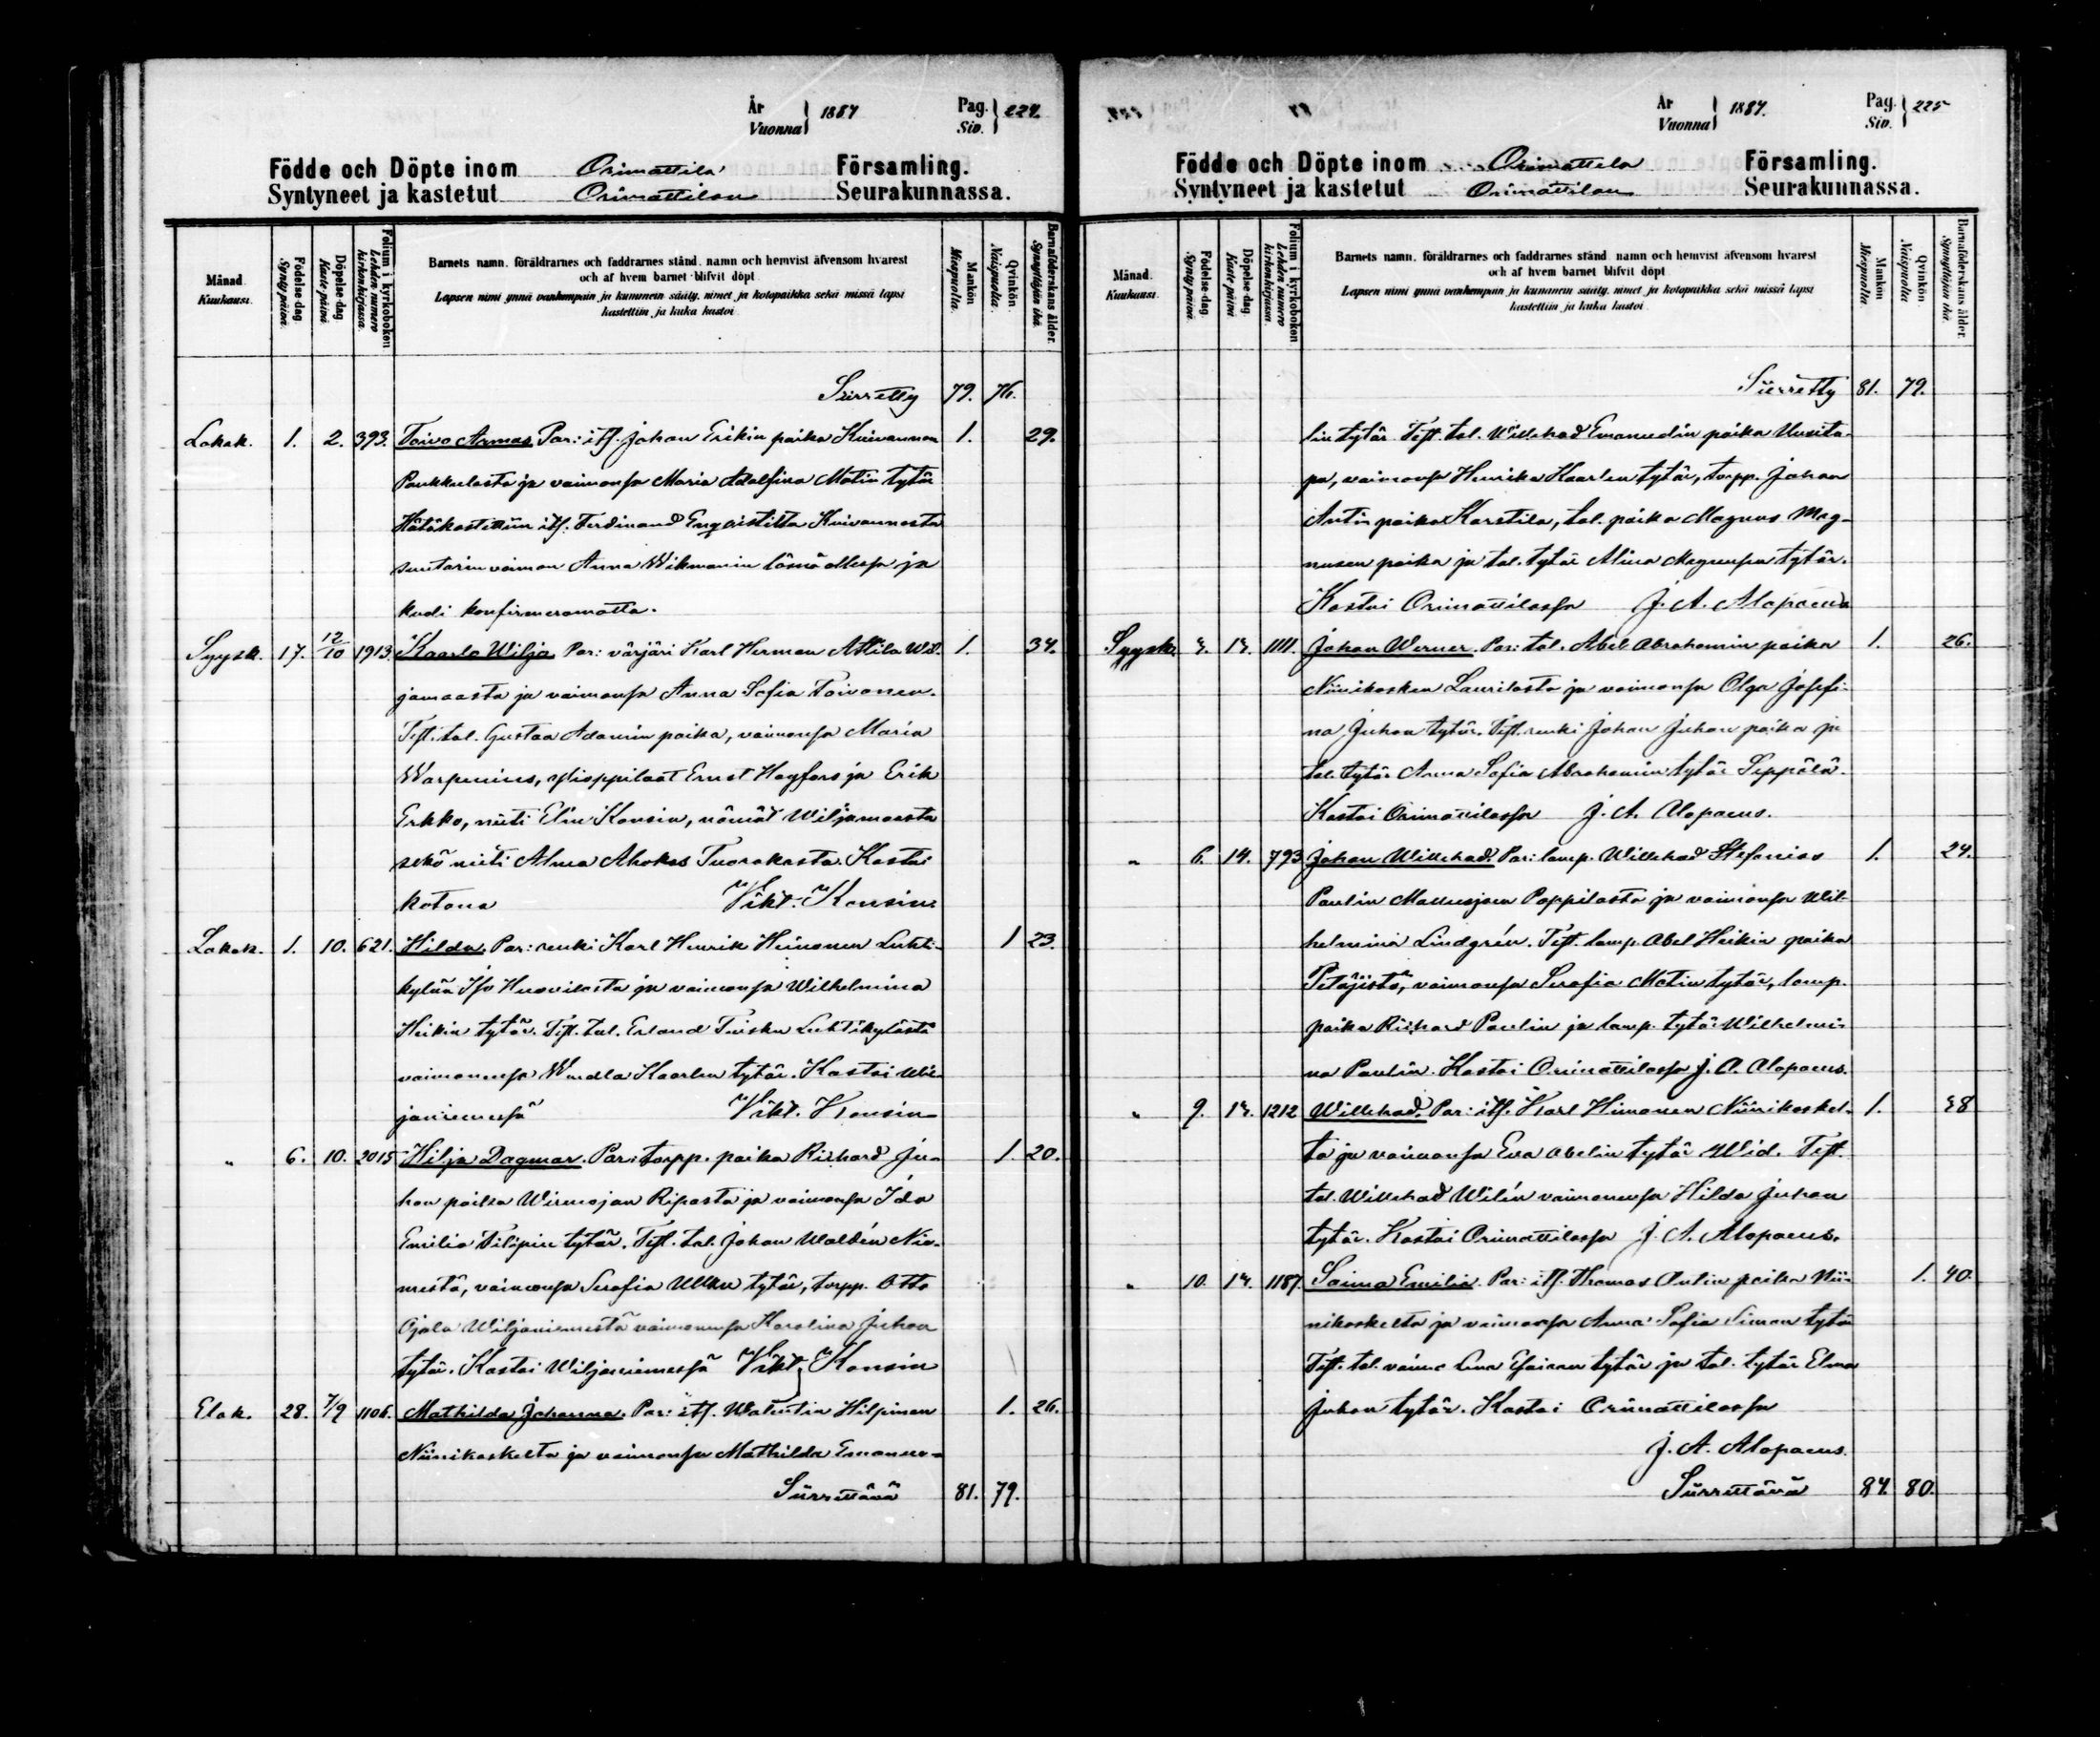 År
Vuonna } 1887
Pag.
Siv. } 224.
Födde och Döpte inom Orimattila Församling.
Syntyneet ja kastetut Orimattilan Seurakunnassa.
Månad.
Kuukausi.
Födelse dag.
Synty päivä.
Döpelse dag
Kaste päivä
Folium i kyrkoboken
Lehden numero
kirkonkirjassa.
Barnets namn, föräldrarnes och faddrarnes stånd, namn och hemvist äfvensom hvarest
och af hvem barnet blifvit döpt.
Lapsen nimi ynnä vanhempain ja kummein sääty, nimet ja kotopaikka sekä missä lapsi
kastettiin ja kuka kastoi.
Mankön
Miespuolta.
Qvinkön.
Naispuolta.
Barnaföderskans ålder.
Synnyttäjän ikä.
Siirretty 79. 76.
Lokak. 1. 2. 393. Toivo Armas Par: itj. Johan Erikin poika Kuivannon 1. 29.
Paukkulasta ja vaimonsa Maria Adolfina Matin tytär
Hätäkastettiin itj. Ferdinand Engqvistiltä Kuivannosta
suutarin vaimon Anna Wikmanin läsnä ollessa ja
kuoli konfirmeramatta.
Syysk. 17. 12/10 1913 Kaarlo Wilja Par: värjäri Karl Herman Attila Wil- 1. 34.
jamaasta ja vaimonsa Anna Sofia Toivonen.
Test. tal. Gustaa Adamin poika, vaimonsa Maria
Warpenius, ylioppilaat Ernst Hagfors ja Erik
Erkko, neiti Elin Konsin, nämät Wiljamaasta
sekä neiti Alma Ahokas Tuorakasta. Kastoi
kotona Vikt. Konsin.
Lokak. 1. 10. 621. Hilda. Par: renki Karl Henrik Heinonen Luhti- 1 23.
kylän Iso Huovilasta ja vaimonsa Wilhelmina
Heikin tytär. Test. tal. Erland Tuisku Luhtikylästä
vaimonensa Wendla Kaarlen tytär. Kastoi Wil-
janiemessä Vikt. Konsin
„ 6. 10. 2015 Hilja Dagmar. Par: torpp. poika Richard Ju- 1. 20.
han poika Wirmajan Ripasta ja vaimonsa Ida
Emilia Filipin tytär. Test. tal. Johan Waldén Nie-
mestä, vaimonsa Serafia Ullan tytär, torpp. Otto
Ojala Wiljaniemestä vaimonensa Karolina Juhan
tytär. Kastoi Wiljaniemessä Vikt. Konsin
Elok. 28. 7/9 1106. Mathilda Johanna. Par: itj. Walentin Hilpinen 1. 26.
Niinikoskelta ja vaimonsa Mathilda Emanue-
Siirrettävä 81. 79.
År
Vuonna } 1887.
Pag.
Siv. } 225
Födde och Döpte inom Orimattila Församling.
Syntyneet ja kastetut Orimattilan Seurakunnassa.
Månad.
Kuukausi.
Födelse dag.
Synty päivä.
Döpelse dag.
Kaste päivä
Folium i kyrkoboken
Lehden numero
kirkonkirjassa.
Barnets namn, föräldrarnes och faddrarnes stånd, namn och hemvist äfvensom hvarest
och af hvem barnet blifvit döpt.
Lapsen nimi ynnä vanhempain ja kummein sääty, nimet ja kotopaikka sekä missä lapsi
kastettiin ja kuka kastoi.
Mankön
Miespuolta.
Qvinkön.
Naispuolta
Barnaföderskans ålder.
Synnyttäjän ikä.
Siirretty 81. 79.
lin tytär Test. tal. Willehad Emanuelin poika Uusita-
pa, vaimonsa Henrika Kaarlen tytär, torpp. Johan
Antin poika Karstila, tal. poika Magnus Mag-
nusen poika ja tal. tytär Alina Magnusen tytär.
Kastoi Orimattilassa J. A. Alopaeus
Syysk. 1111. Johan Werner. Par: tal. Abel Abrahamin poika 1. 26.
Niinikosken Laurilasta ja vaimonsa Olga Josefi-
na Juhan tytär. Test. renki Johan Juhan poika ja
tal. tytär Anna Sofia Abrahamin tytär Seppälä.
Kastoi Orimattilassa J. A. Alopaeus.
„ 6. 14. 793 Johan Willehad. Par: lamp. Willehad Stefanias 1. 24.
Paulin Mallusjoen Pappilasta ja vaimonsa Wil-
helmina Lindgrén. Test. lamp. Abel Heikin poika
Petäjistö, vaimonsa Serafia Matin tytär, lamp.
poika Richard Paulin ja lamp. tytär Wilhelmi-
na Paulin. Kastoi Orimattilassa J. A. Alopaeus.
„ 9. 1212 Willehad. Par: itj. Karl Himanen Niinikoskel- 1. 38
ta ja vaimonsa Eva Abelin tytär Wid. Test.
tal. Willehad Wilén vaimonensa Hilda Juhan
tytär. Kastoi Orimattilassa J. A. Alopaeus.
„ 10. 1187. Saima Emilia. Par: itj. Thomas Antin poika Nii- 1. 40.
nikoskelta ja vaimonsa Anna Sofia Simon tytär
Test. tal. vaimo Lena Esaiaan tytär ja tal. tytär Elma
Juhan tytär. Kastoi Orimattilassa
J. A. Alopaeus.
Siirrettävä 84. 80.